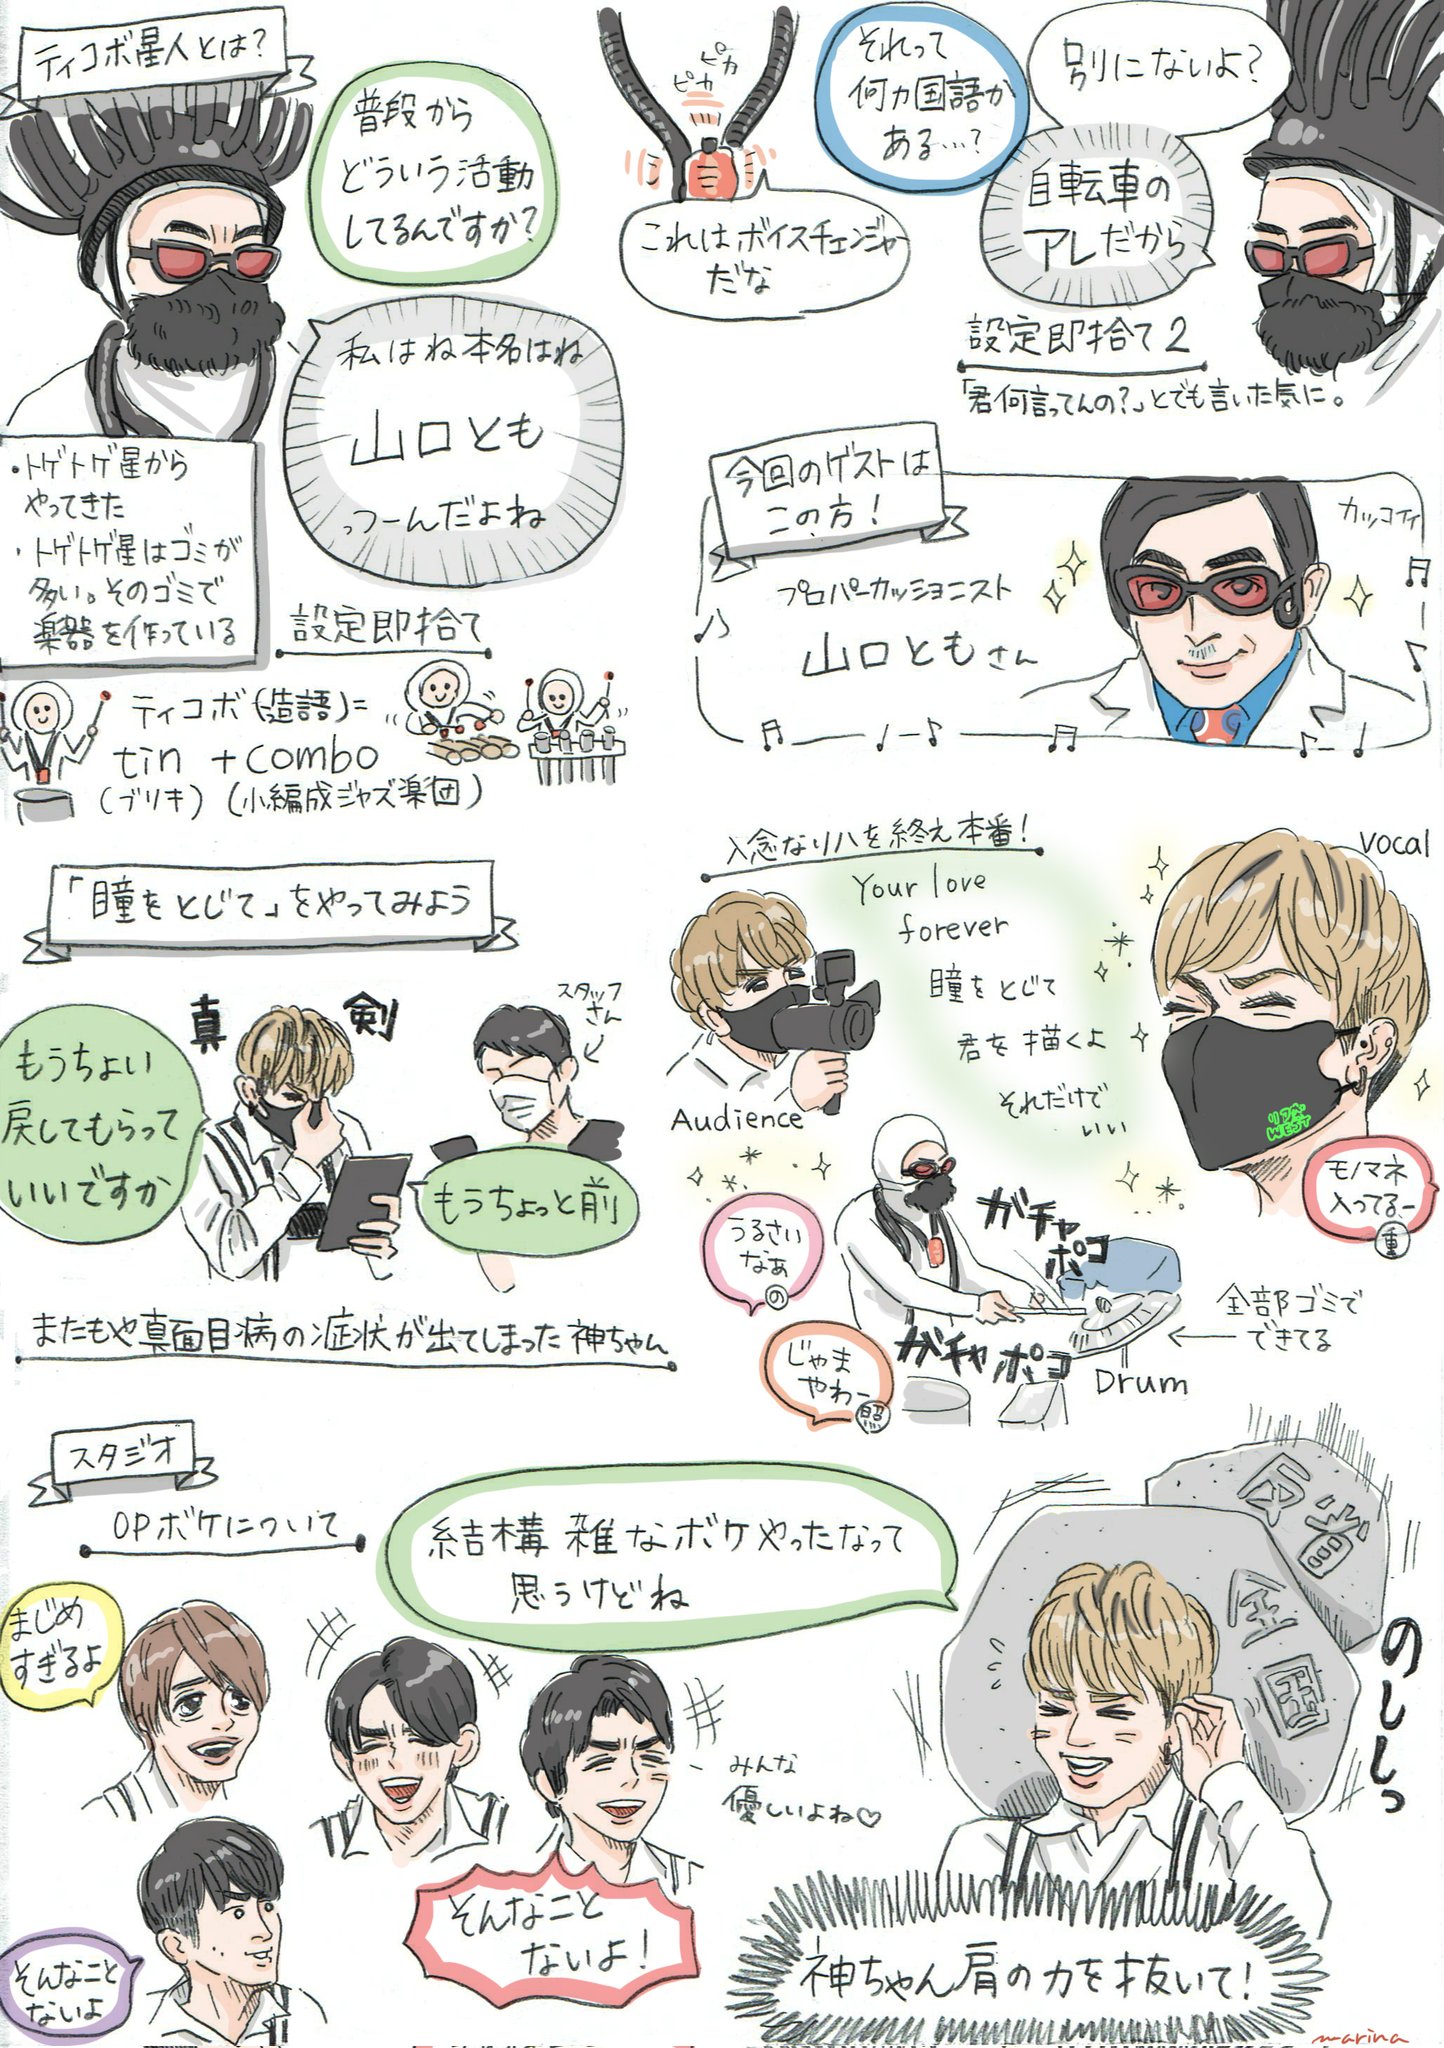 ティコボ星人とは?
普段から
どういう活動
してるんですか?
私はね本名はね
山口とも
っつーんだよね
・トゲトゲ星から
やってきた
・トゲトゲ星はゴミが
多い。そのゴミで
楽器を作っている
設定即捨て
ティコボ(造語)=
tin + combo
(ブリキ) (小編成ジャズ楽団)
ピカ
ピカ
これはボイスチェンジャー
だな
それって
何ヵ国語か
ある…?
別にないよ?
自転車の
アレだから
設定即捨て2
「君何言ってんの?」とでも言いた気に。
今回のゲストは
この方!
カッコイイ
プロパーカッショニスト
山口ともさん
「瞳をとじて」をやってみよう
真剣
スタッフ
さん
もうちょい
戻してもらって
いいですか
もうちょっと前
またもや真面目病の症状が出てしまった神ちゃん
入念なリハを終え本番!
vocal
Your love
forever
瞳をとじて
君を描くよ
それだけで
いい
Audience
WEST
モノマネ
入ってるー
重
うるさい
なぁ
の
ガチャ
ポコ
じゃま
やわー
照
ガチャポコ
Drum
全部ゴミで
できてる
スタジオ
OPボケについて
結構雑なボケやったなって
思うけどね
まじめ
すぎるよ
みんな
優しいよね♡
そんなこと
ないよ!
そんなこと
ないよ
反省
全国
のししっ
神ちゃん肩の力を抜いて!
marina